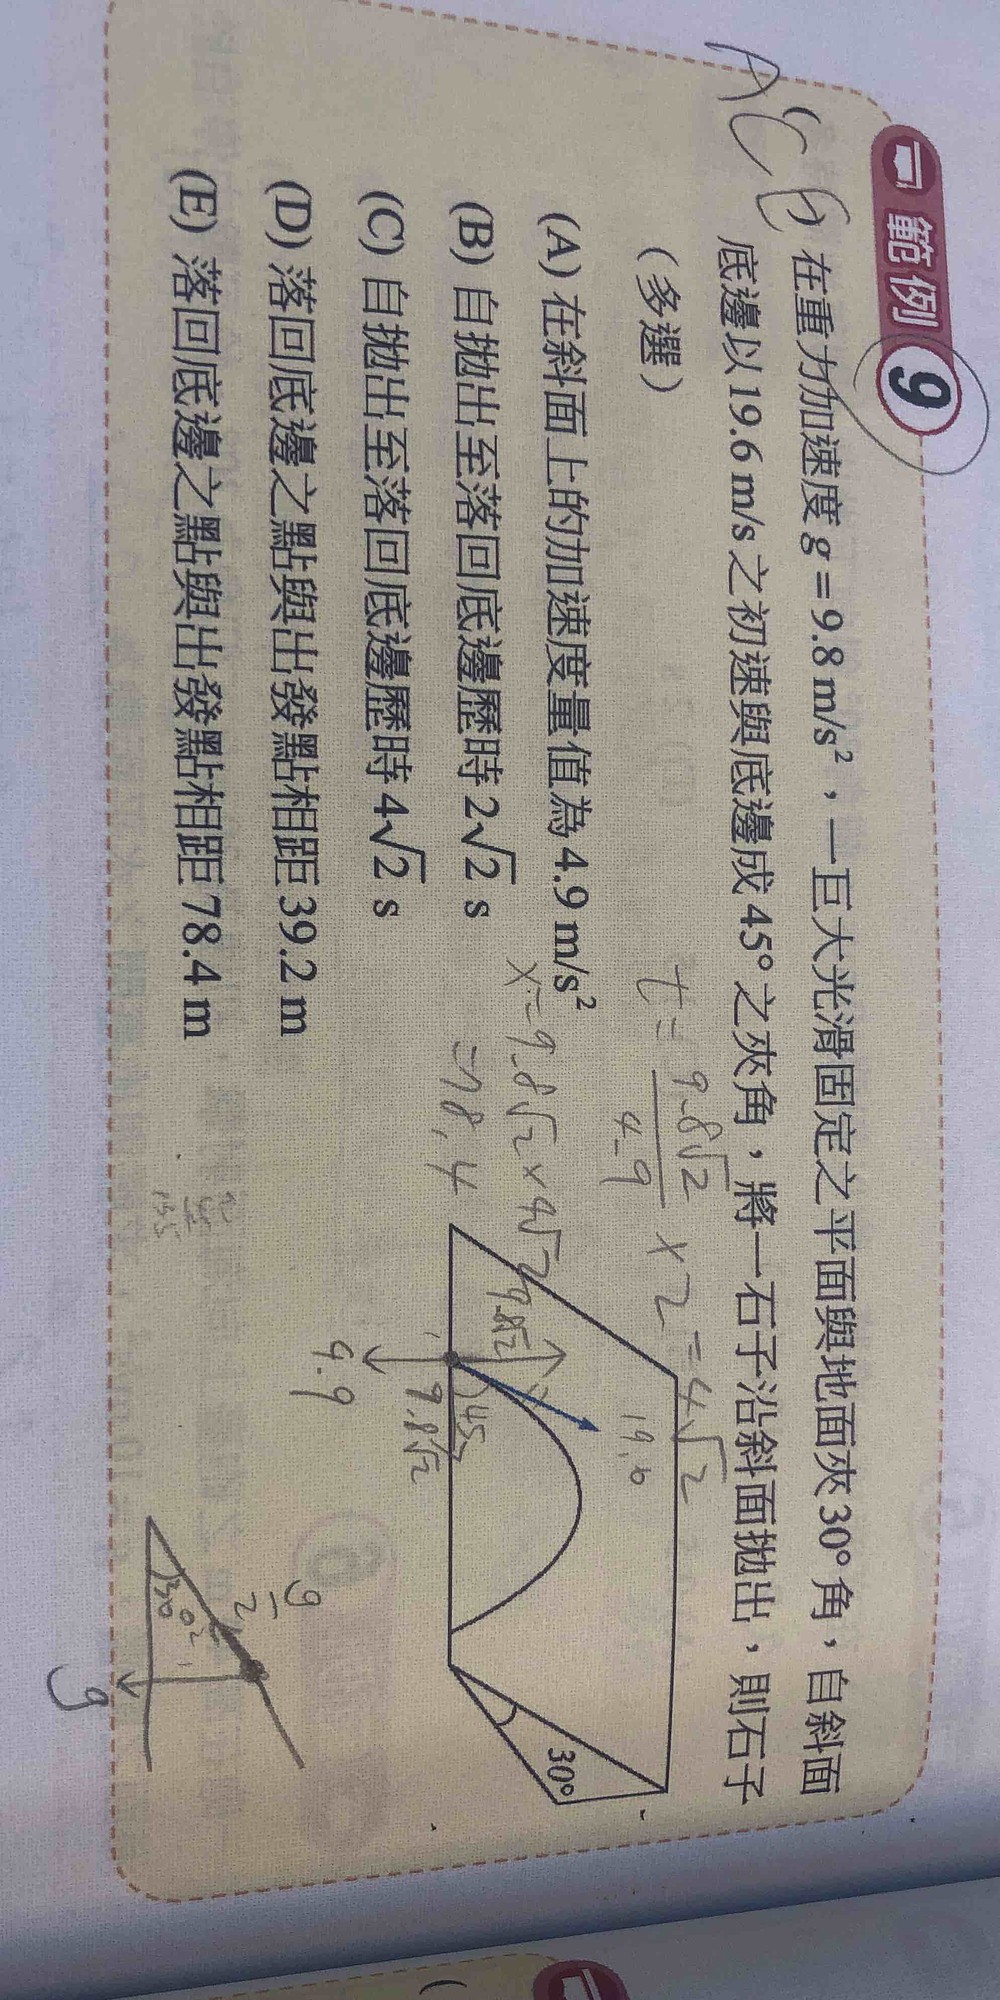 範例 9
ACE
在重力加速度 g=9.8 m/s²，一巨大光滑固定之平面與地面夾30°角，自斜面
底邊以19.6 m/s之初速與底邊成45°之夾角，將一石子沿斜面拋出，則石子
（多選）
(A) 在斜面上的加速度量值為4.9 m/s²
(B) 自拋出至落回底邊歷時2√2 s
(C) 自拋出至落回底邊歷時4√2 s
(D) 落回底邊之點與出發點相距39.2 m
(E) 落回底邊之點與出發點相距78.4 m
t = 9.8√2 / 4.9 × 2 = 4√2
x = 9.8√2 × 4√2
= 78.4
9.8√2
19.6
45°
9.8√2
4.9
30°
g/2
30°
g